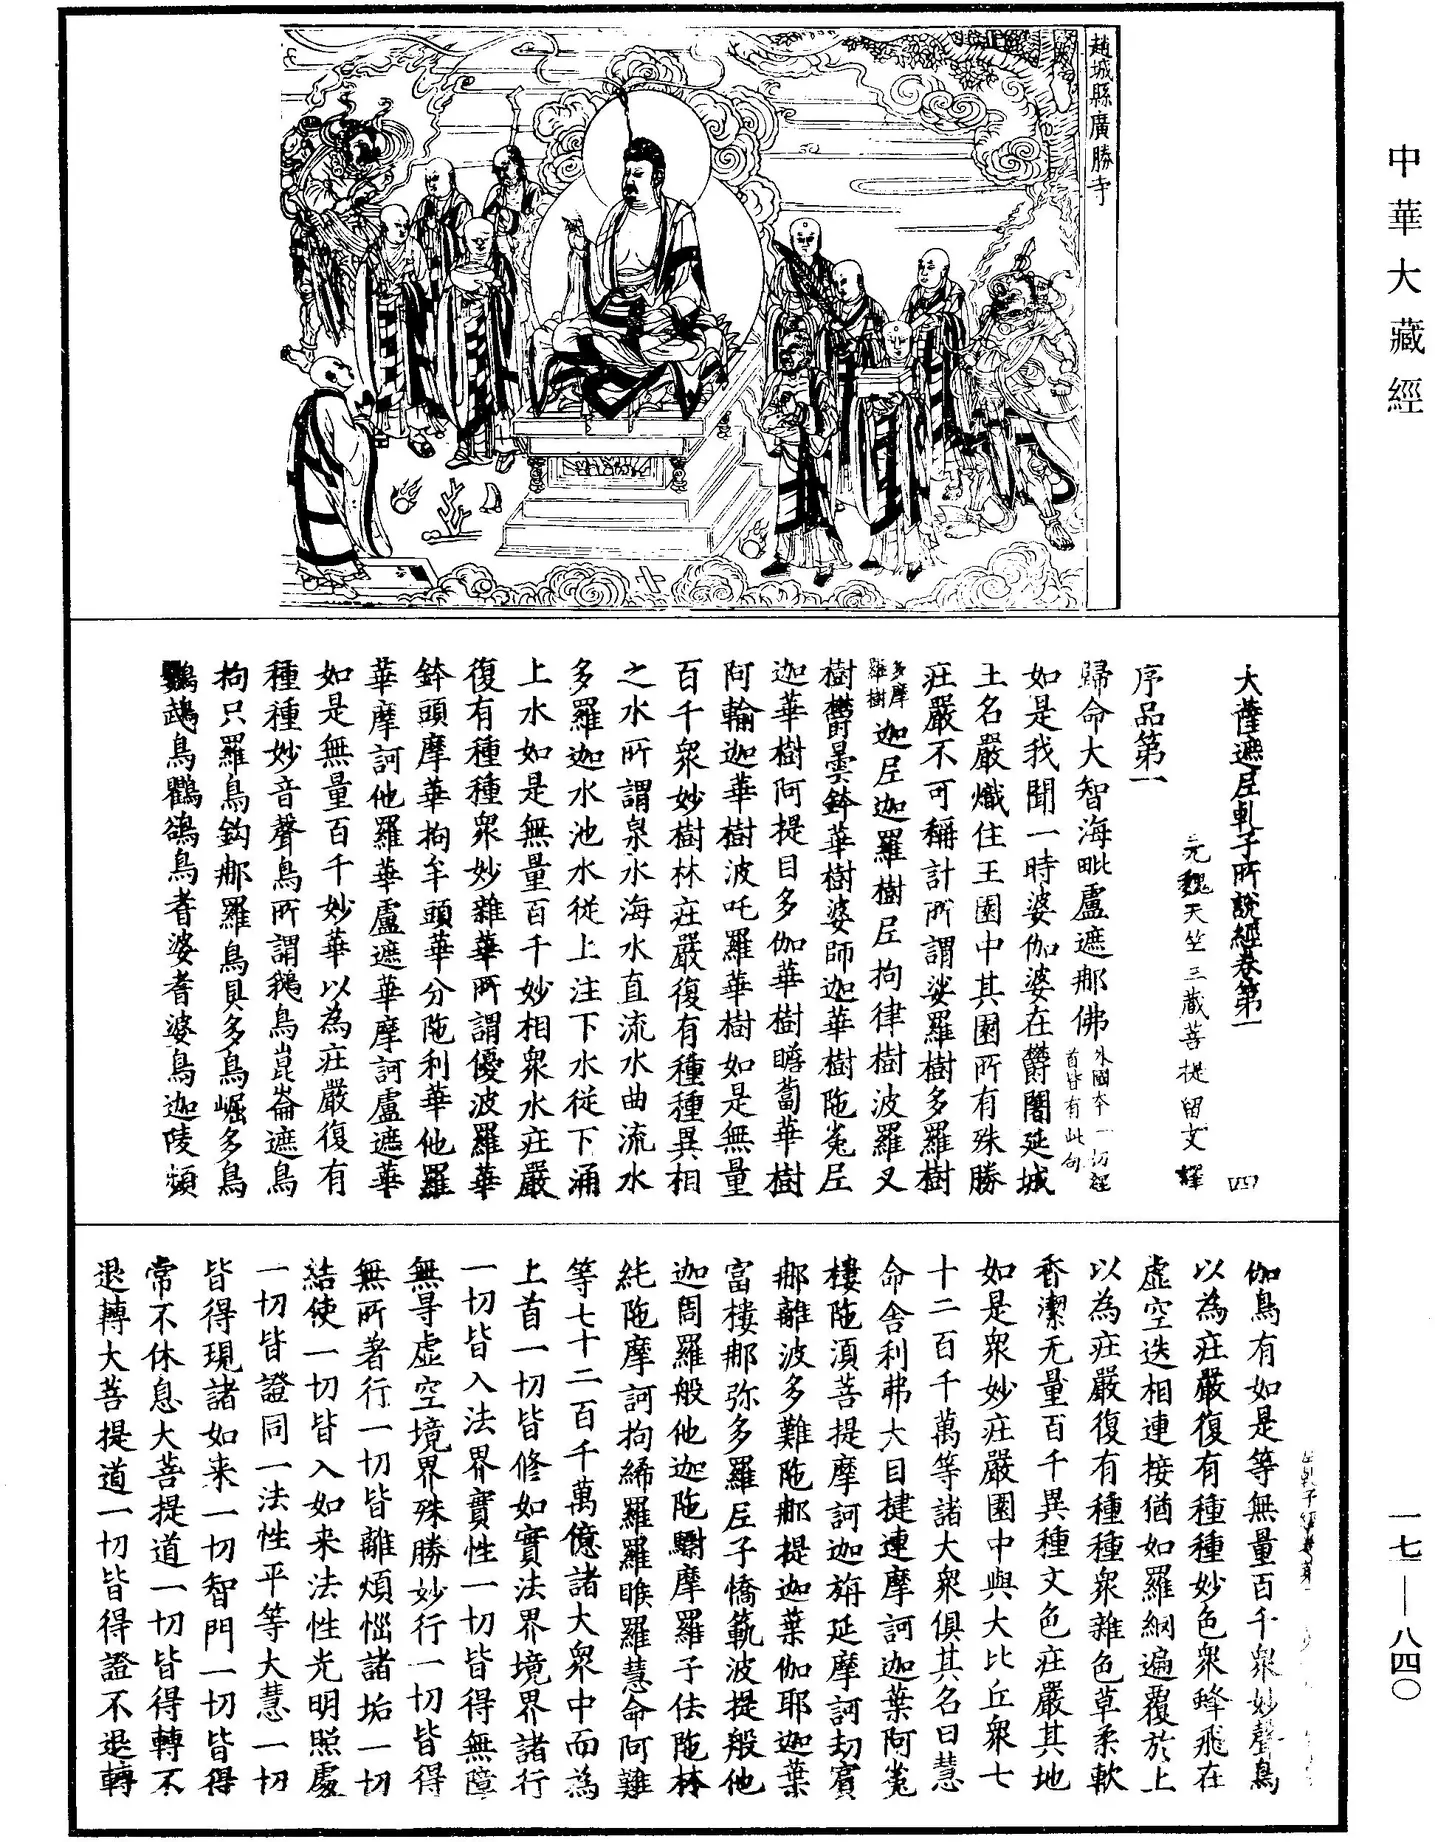 中華大藏經
一七—八四〇
趙城縣廣勝寺
大薩遮尼乹子所說經卷第一
四
元魏天竺三藏菩提留支譯
序品第一
歸命大智海毗盧遮那佛外國本一切經首皆有此句
如是我聞一時婆伽婆在欝闍延城
王名嚴熾住王園中其園所有殊勝
莊嚴不可稱計所謂娑羅樹多羅樹
多摩羅樹迦尼迦羅樹尼拘律樹波羅叉
樹欝曇鉢華樹婆師迦華樹陁㝹尼
迦華樹阿提目多伽華樹瞻蔔華樹
阿輸迦華樹波吒羅華樹如是無量
百千衆妙樹林莊嚴復有種種異相
之水所謂泉水海水直流水曲流水
多羅迦水池水從上注下水從下涌
上水如是無量百千妙相衆水莊嚴
復有種種衆妙雜華所謂優波羅華
鉢頭摩華拘牟頭華分陁利華他羅
華摩訶他羅華盧遮華摩訶盧遮華
如是無量百千妙華以為莊嚴復有
種種妙音聲鳥所謂鵝鳥崑崙遮鳥
拘只羅鳥鈎那羅鳥貝多鳥崛多鳥
鸚鵡鳥鸜鵒鳥耆婆耆婆鳥迦陵頻
伽鳥有如是等無量百千衆妙聲鳥
以為莊嚴復有種種妙色衆蜂飛在
虛空迭相連接猶如羅網遍覆於上
以為莊嚴復有種種衆雜色草柔軟
香潔无量百千異種文色莊嚴其地
如是衆妙莊嚴園中與大比丘衆七
十二百千萬等諸大衆俱其名曰慧
命舍利弗大目揵連摩訶迦葉阿㝹
樓陁湏菩提摩訶迦旃延摩訶劫賓
那離波多難陁那提迦葉伽耶迦葉
富樓那弥多羅尼子憍𥮅波提般他
迦周羅般他迦陁驃摩羅子佉陁林
純陁摩訶拘絺羅羅睺羅慧命阿難
等七十二百千萬億諸大衆中而為
上首一切皆修如實法界境界諸行
一切皆入法界實性一切皆得無障
無㝵虛空境界殊勝妙行一切皆得
無所著行一切皆離煩惱諸垢一切
結使一切皆入如来法性光明照處
一切皆證同一法性平等大慧一切
皆得現諸如来一切智門一切皆得
常不休息大菩提道一切皆得轉不
退轉大菩提道一切皆得證不退轉